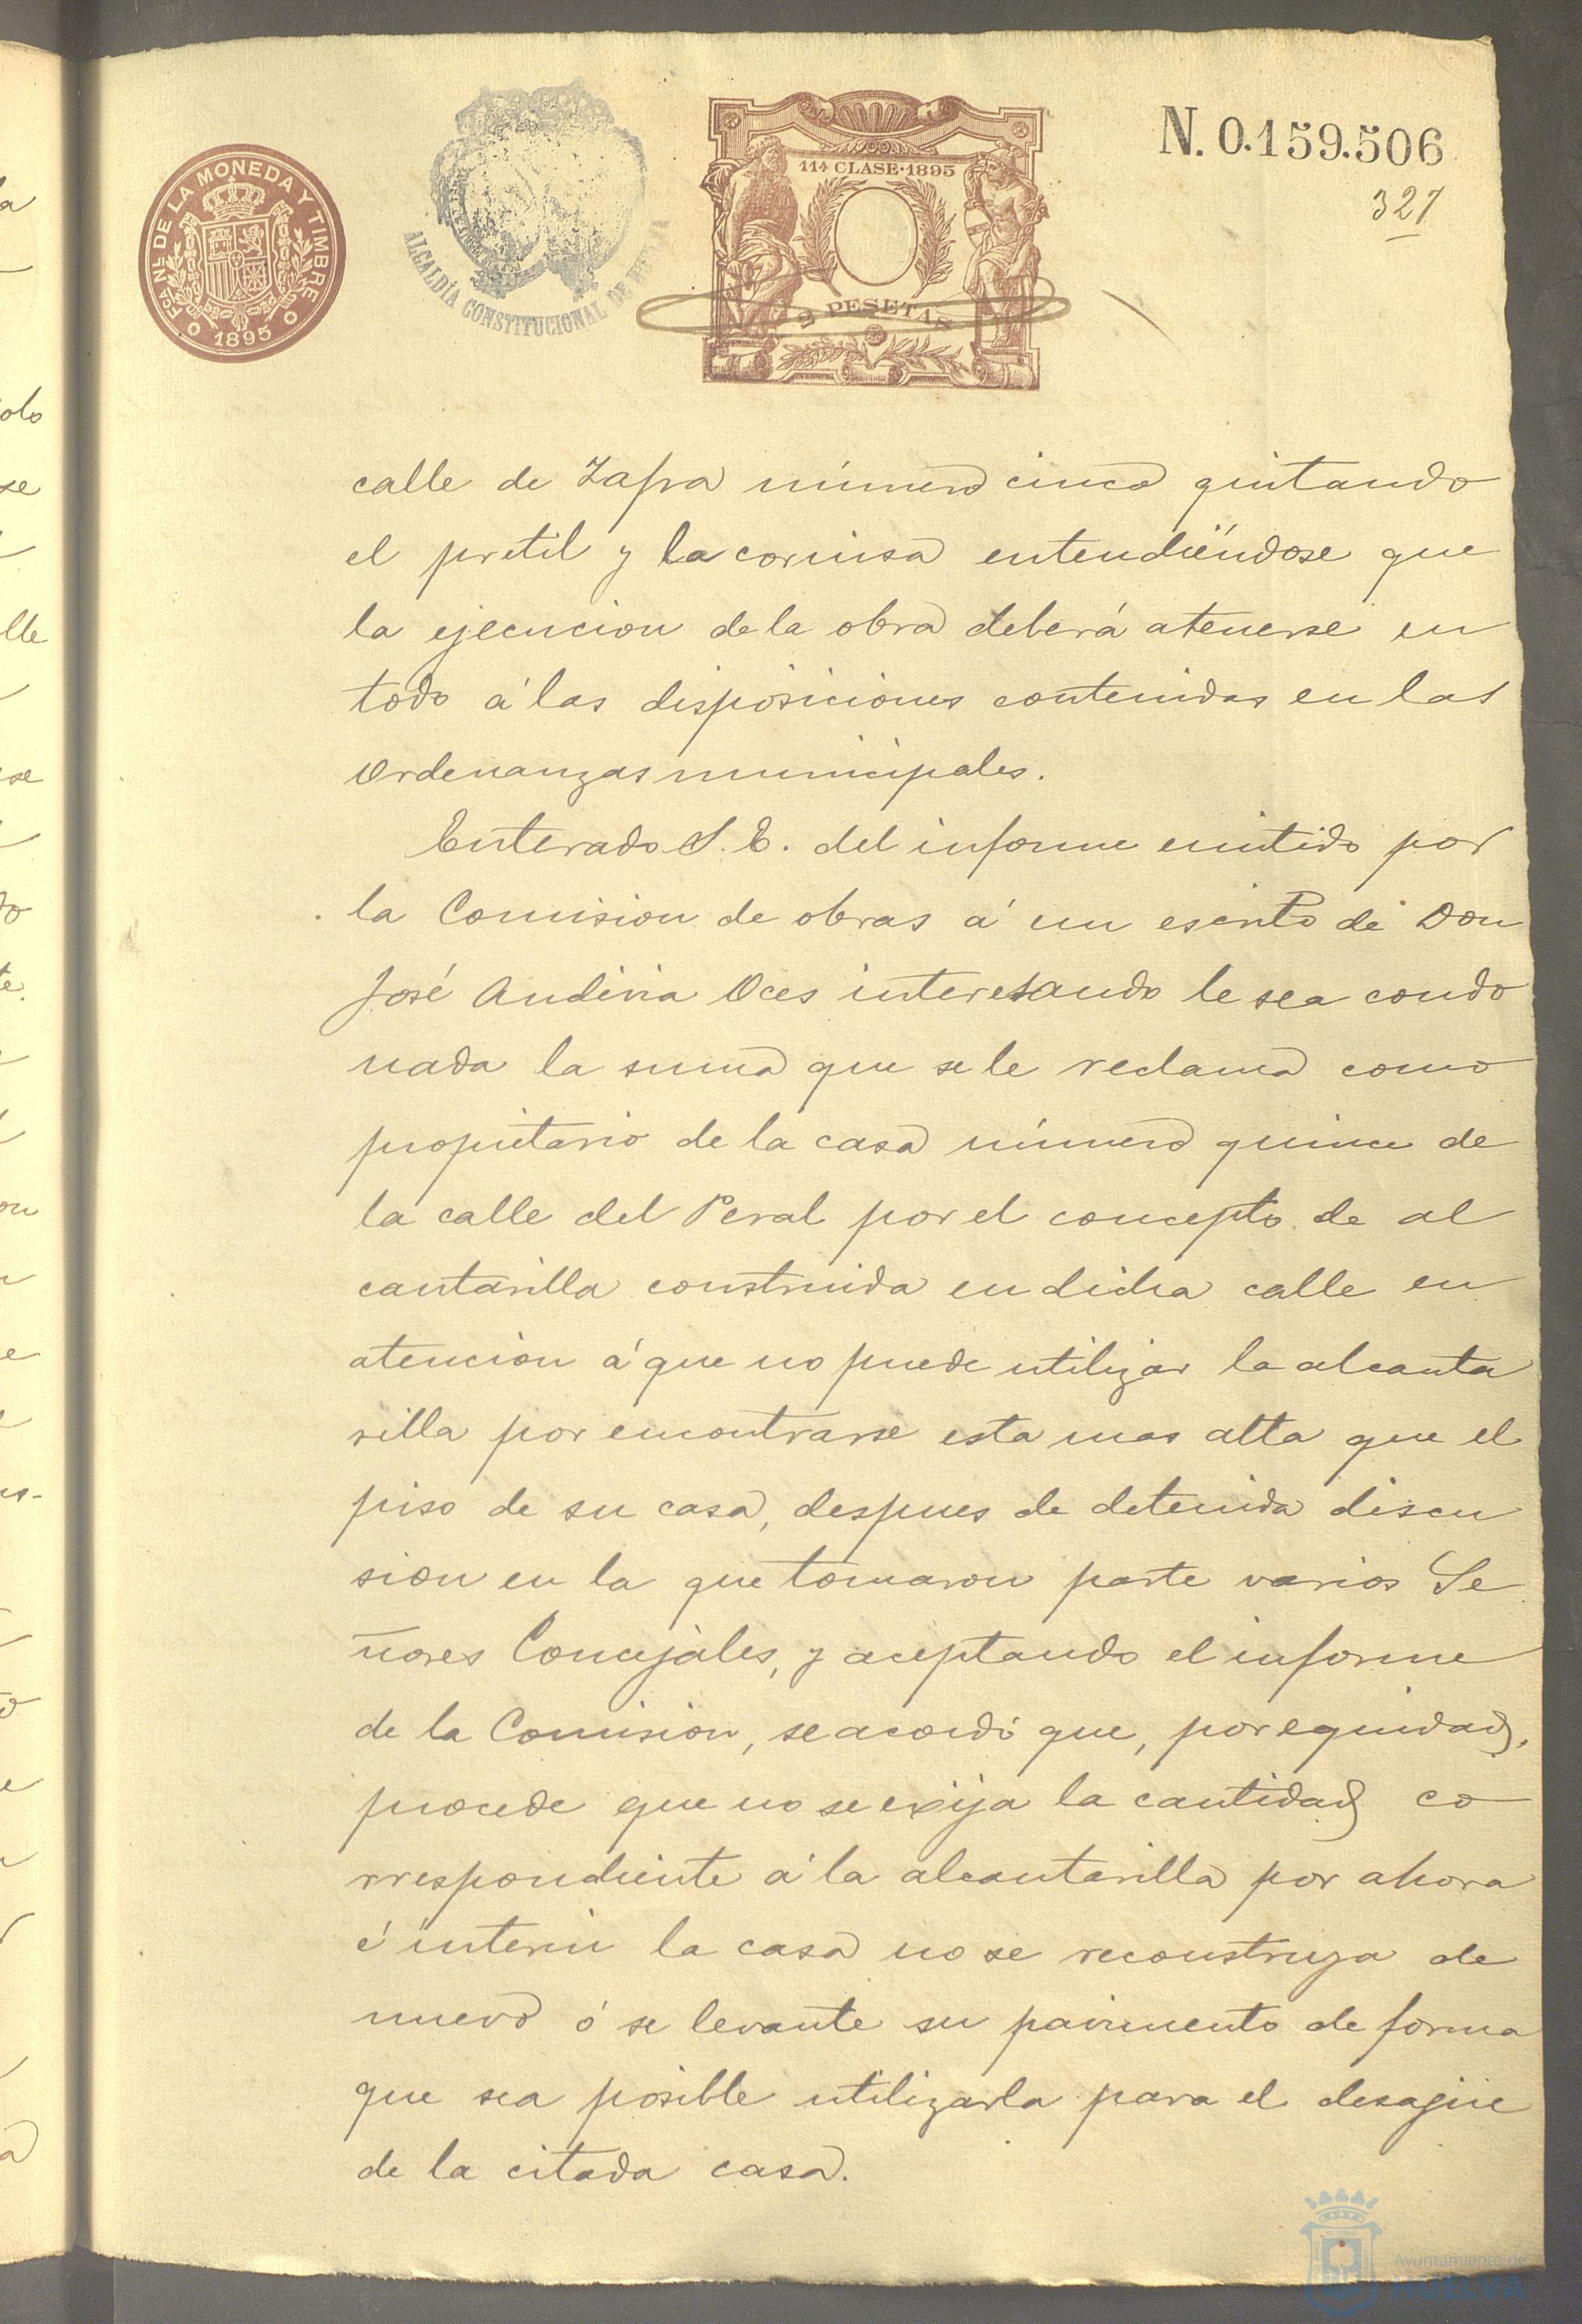 FCA. NL. DE LA MONEDA Y TIMBRE
1895
ALCALDÍA CONSTITUCIONAL DE HUELVA
11ª CLASE·1895
2 PESETAS
N. 0.159.506
327
calle de Zafra número cinco quitando
el pretil y la cornisa entendiéndose que
la ejecucion de la obra deberá atenerse en
todo á las disposiciones contenidas en las
Ordenanzas municipales.
Enterado S. E. del informe emitido por
la Comision de obras á un escrito de Don
José Andivia Oces interesando le sea condo
nada la suma que se le reclama como
propietario de la casa número quince de
la calle del Peral por el concepto de al
cantarilla construida en dicha calle en
atencion á que no puede utilizar la alcanta
rilla por encontrarse esta mas alta que el
piso de su casa, despues de detenida discu
sion en la que tomaron parte varios Se
ñores Concejales, y aceptando el informe
de la Comision, se acordó que, por equidad,
procede que no se exija la cantidad co
rrespondiente á la alcantarilla por ahora
é interin la casa no se reconstruya de
nuevo ó se levante su pavimento de forma
que sea posible utilizarla para el desagüe
de la citada casa.
Ayuntamiento de
HUELVA